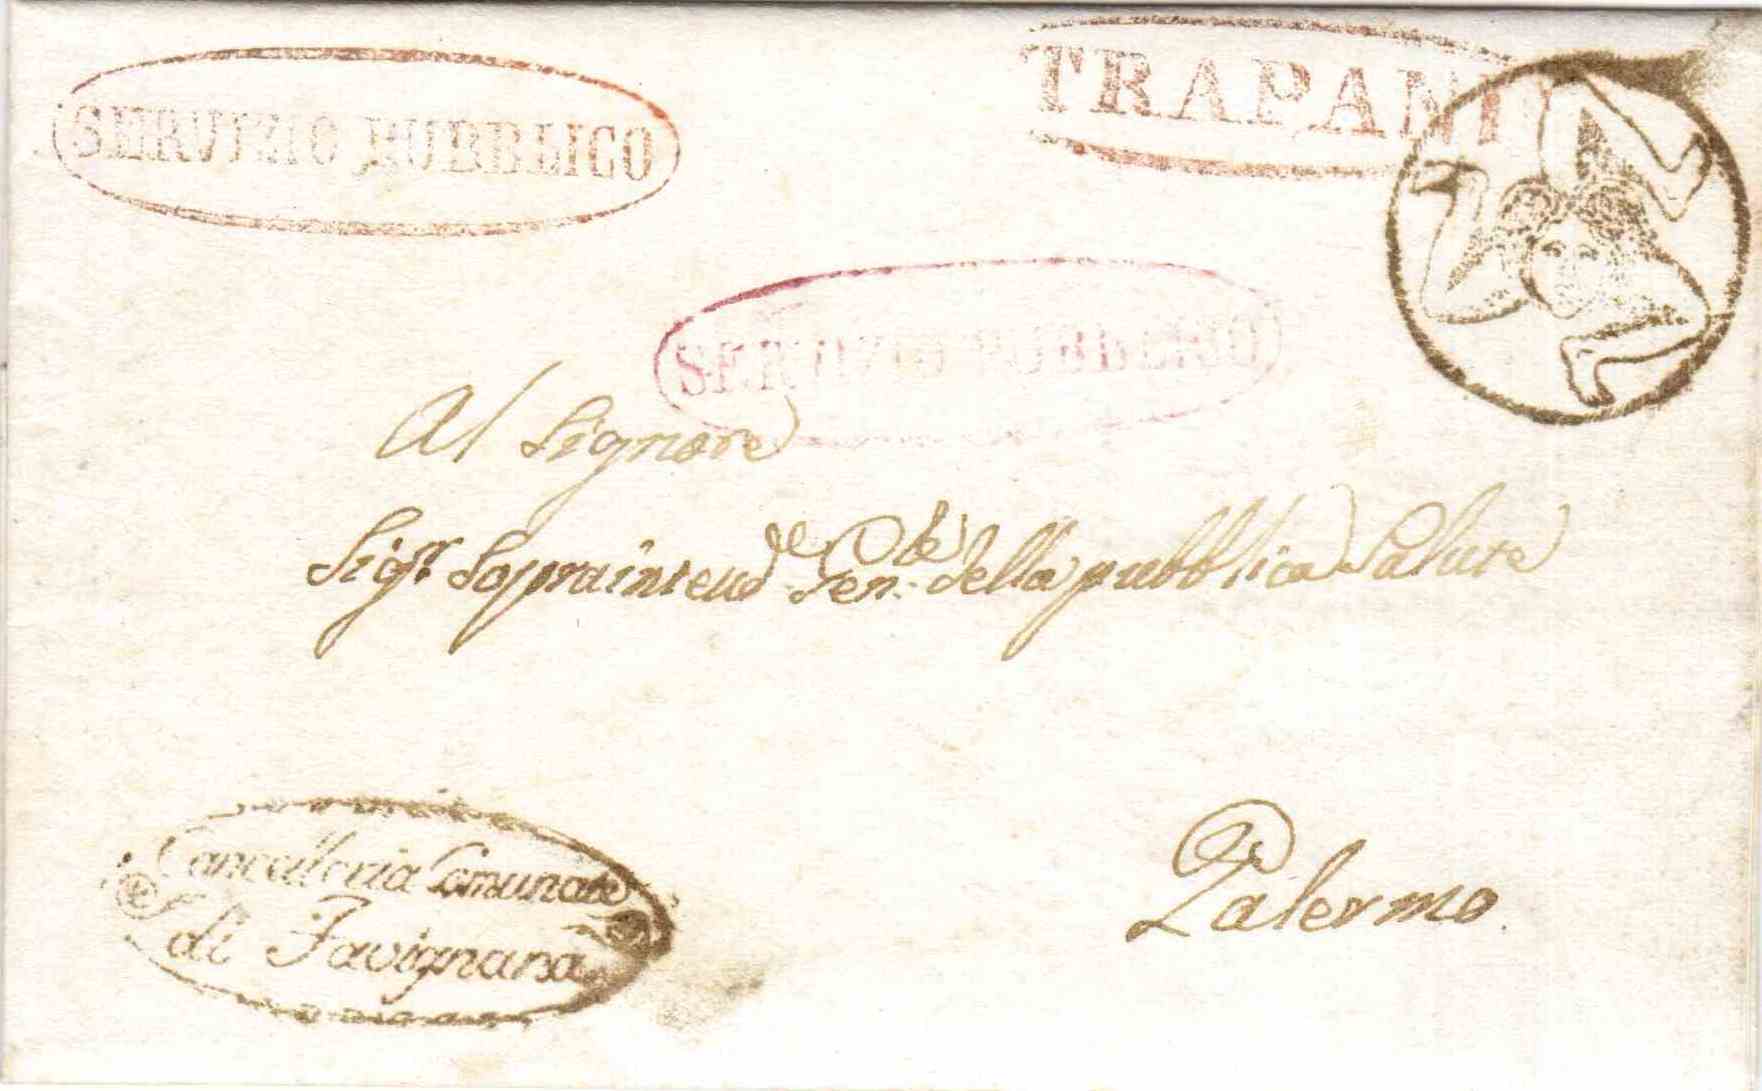 SERVIZIO PUBBLICO
TRAPANI
SERVIZIO PUBBLICO
Al Signore
Sigr Sopraintendde Genle della pubblica Salute
Palermo.
Cancelleria Comunale
di Favignana